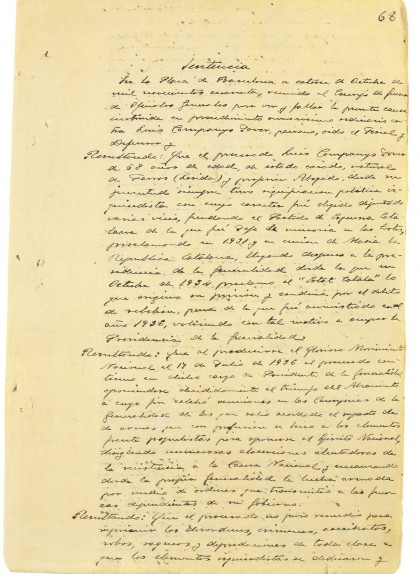 68
Sentencia
En la Plaza de Barcelona a catorce de Octubre de
mil novecientos cuarenta, reunido el Consejo de Guerra
de Oficiales Generales para ver y fallar la presente causa
instruida en procedimiento sumarísimo ordinario con
tra Luis Companys Jover, paisano, oido el Fiscal y
Defensor y
Resultando: Que el procesado Luis Companys Jover
de 58 años de edad, de estado casado, natural
de Tarros (Lérida) y profesión Abogado, desde su
juventud siempre tuvo significacion politica iz
quierdista con cuyo caracter fué elegido diputado
varias veces, fundando el Partido de Esquerra Cata
lana de la que fué Jefe de minoria en las Cortes,
proclamando en 1931 y en union de Maciá la
Republica Catalana, llegando despues a la pre
sidencia de la Generalidad desde la que en
Octubre de 1934 proclamó el "Estat Catalá" lo
que originó su prision y condena por el delito
de rebelión, pena de la que fué amnistiado en el
año 1936, volviendo con tal motivo a ocupar la
Presidencia de la Generalidad.
Resultando: Que al producirse el Glorioso Movimiento
Nacional el 17 de Julio de 1936 el procesado con
tinuo en dicho cargo de Presidente de la Generalidad
oponiendose decididamente al triunfo del Alzamiento
a cuyo fin celebró reuniones en las Consejerias de la
Generalidad de las que salió acordado el reparto
de armas que con profusion se hizo a los elementos
frente populistas para oponerse al Ejército Nacional,
dirigiendo numerosas alocuciones alentadoras de
la resistencia a la Causa Nacional y encauzando
desde la propia Generalidad la lucha armada
por medio de ordenes que transmitia a las fuer
zas dependientes de su Gobierno.
Resultando: Que el procesado no puso remedio para
reprimir los desordenes, crimenes, asesinatos,
robos, saqueos y depredaciones de toda clase a
que los elementos izquierdistas se dedicaron y